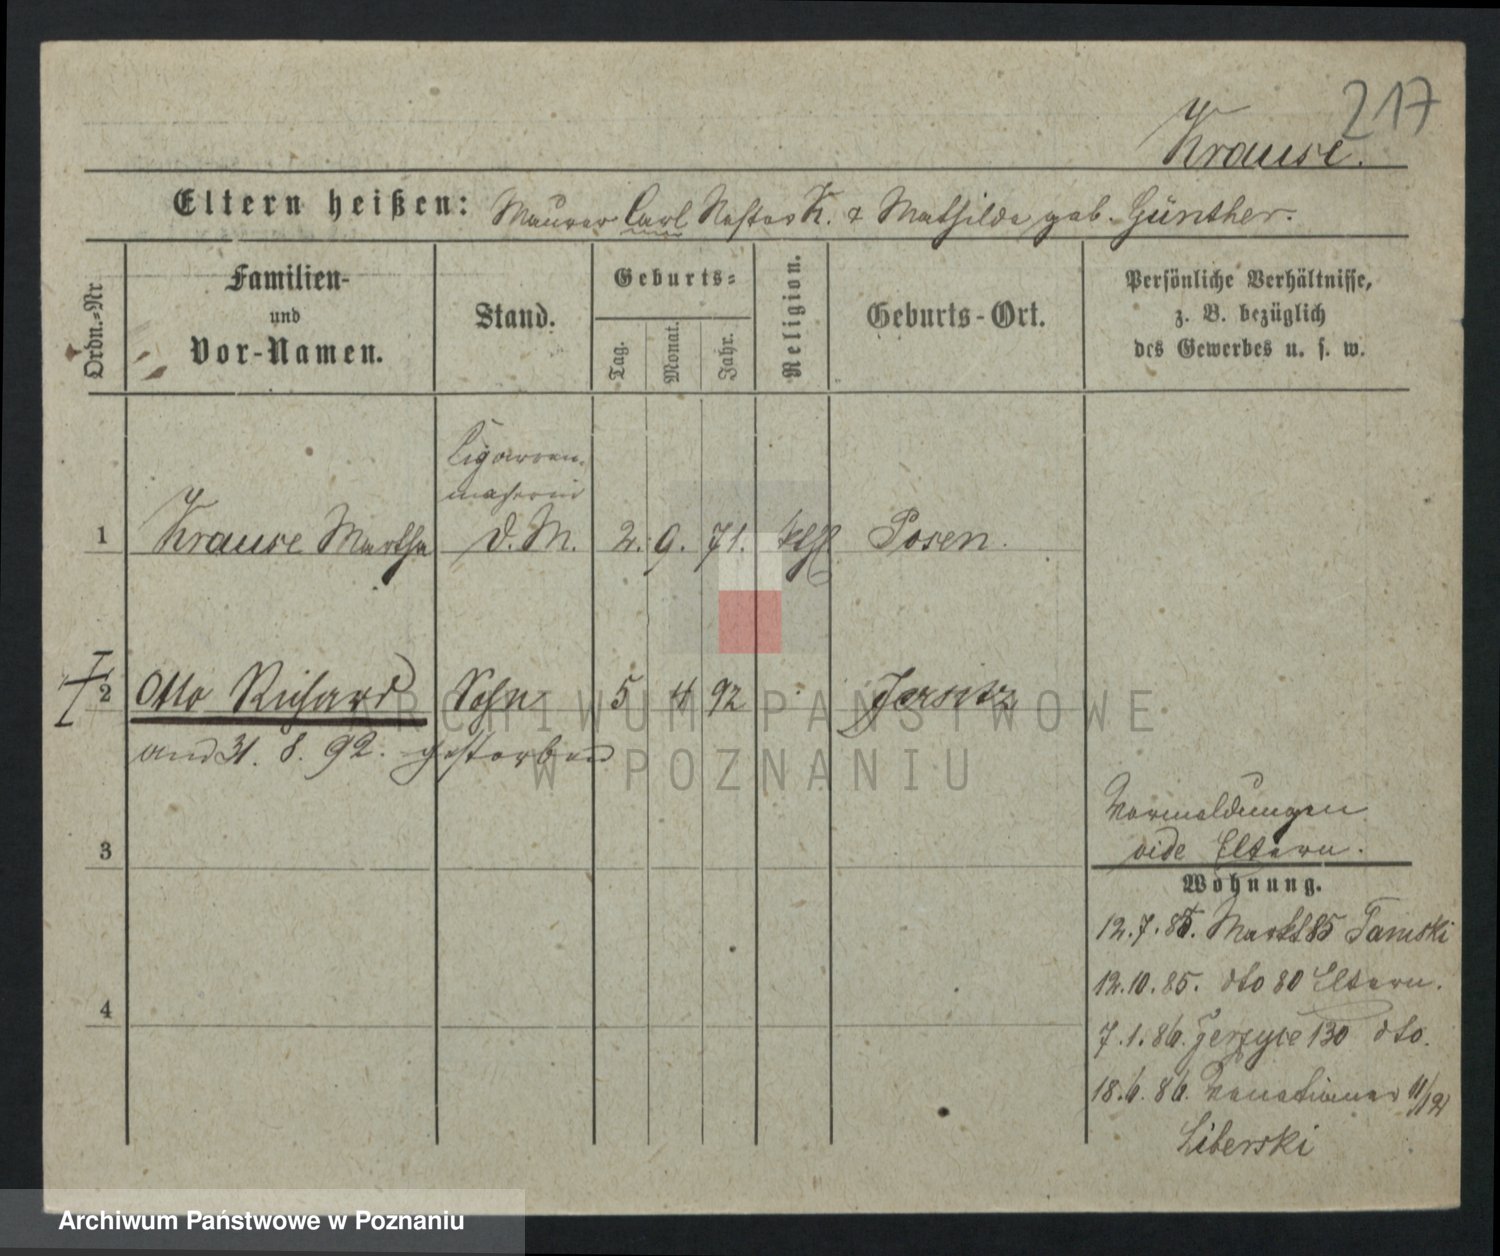 217
Krause.
Eltern heißen: Maurer Carl Nestor K. & Mathilde geb. Günther.
Ordn.-Nr
Familien-
und
Vor-Namen.
Stand.
Geburts-
Tag.
Monat.
Jahr.
Religion.
Geburts-Ort.
Persönliche Verhältnisse,
z. B. bezüglich
des Gewerbes u. s. w.
Cigarren-
macherin
1 Krause Martha d. M. 2. 9. 71. kthl Posen.
2 Otto Richard Sohn 5 4 92 Jersitz
am 31. 8. 92. gestorben
3
4
Vormeldungen
vide Eltern.
Wohnung.
12.7.85. Markt 85 Tamski
12.10.85. dto 80 Eltern.
7.1.86. Jerzyce 130 dto.
18.6.86. Venetianer 11/12
Liberski
ARCHIWUM PAŃSTWOWE
W POZNANIU
Archiwum Państwowe w Poznaniu